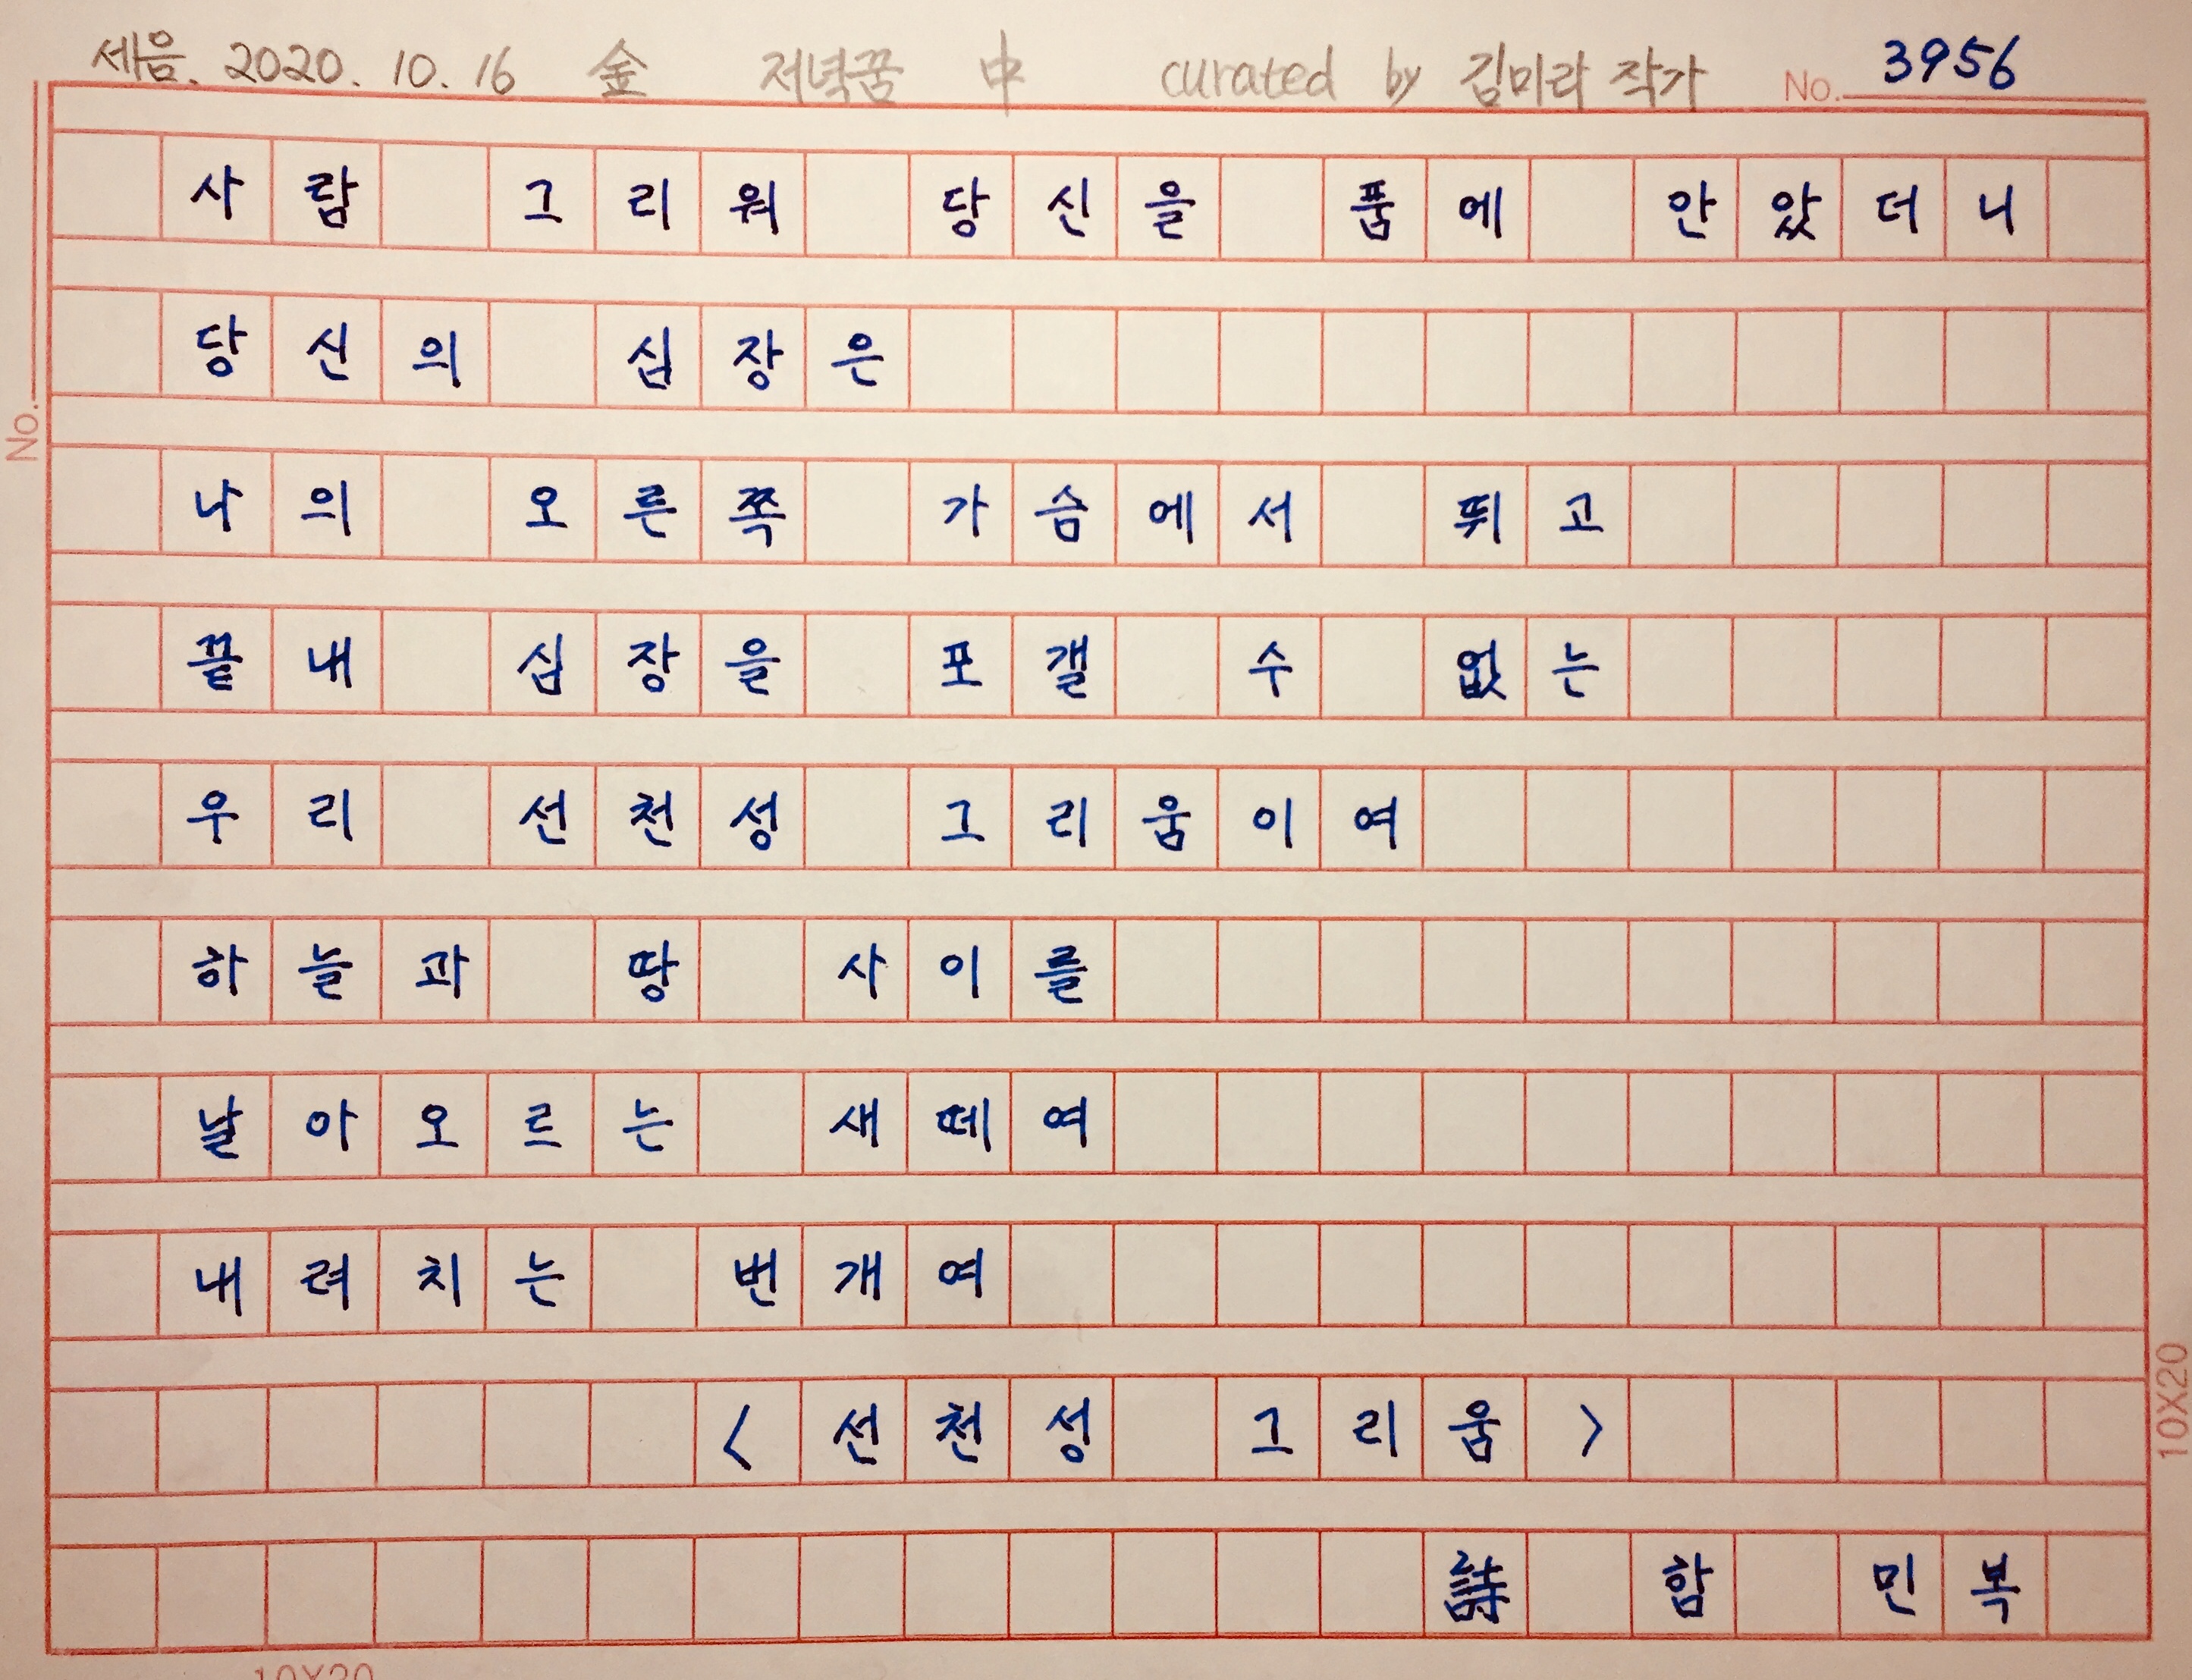 세음. 2020. 10. 16 金 저녁꿈 中 curated by 김미라 작가 No. 3956
No.
사람 그리워 당신을 품에 안았더니
당신의 심장은
나의 오른쪽 가슴에서 뛰고
끝내 심장을 포갤 수 없는
우리 선천성 그리움이여
하늘과 땅 사이를
날아오르는 새떼여
내려치는 번개여
<선천성 그리움>
詩 함 민복
10X20
10X20